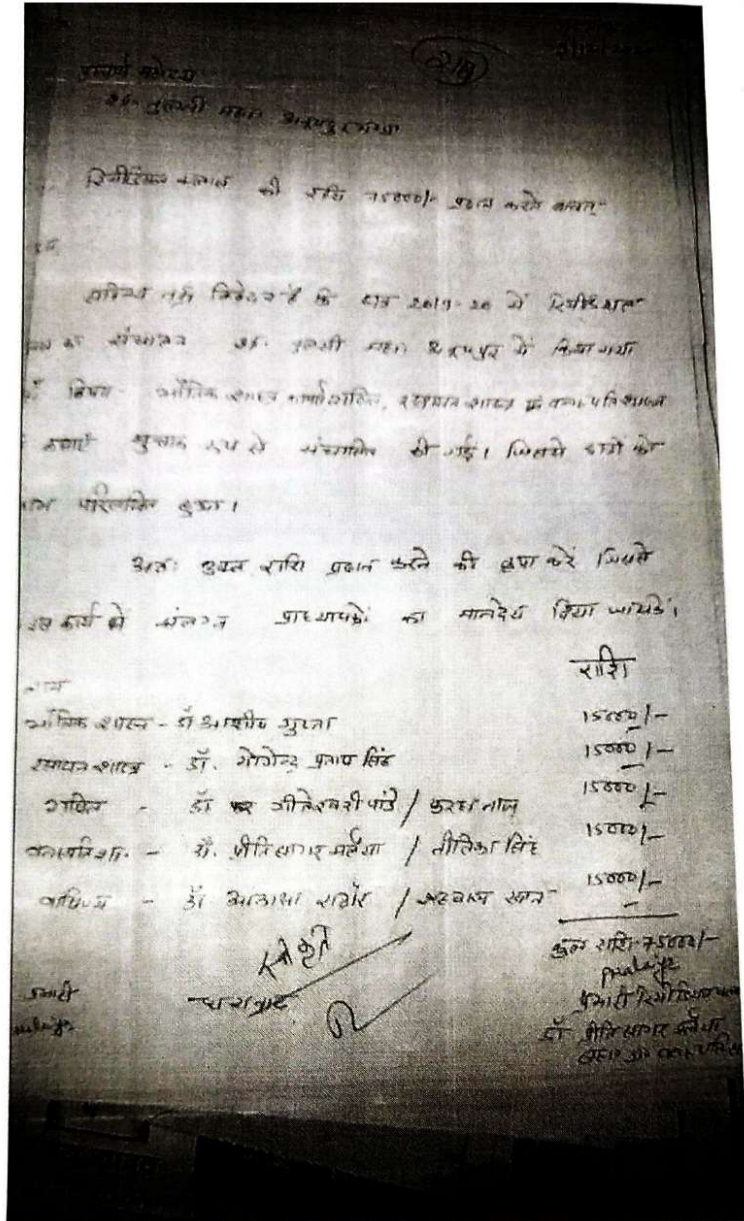 प्राचार्य महोदय
शास. तुलसी महा. अनूपपुर म०प्र०
रिमीडियल क्लास की राशि 75000/- प्रदान करने बाबत्
सविनय नम्र निवेदन है कि सत्र 2019-20 में रिमीडियल
का संचालन शास. तुलसी महा. अनूपपुर में किया गया
विषय - भौतिक शास्त्र, गणित, रसायन शास्त्र एवं वनस्पतिशास्त्र
कक्षाएँ सुचारू रूप से संचालित की गई। जिससे छात्रों को
लाभ परिलक्षित हुआ।
अतः उक्त राशि प्रदान करने की कृपा करें जिससे
इस कार्य में संलग्न प्राध्यापकों का मानदेय दिया जा सके।
नाम राशि
भौतिक शास्त्र - डॉ आशीष गुप्ता 15000/-
रसायन शास्त्र - डॉ. योगेन्द्र प्रताप सिंह 15000/-
गणित - डॉ गीतेश्वरी पांडे / 15000/-
वनस्पतिशा. - डॉ. प्रीति सागर मलैया / नीतिका सिंह 15000/-
वाणिज्य - डॉ आकांक्षा राठौर / शहबाज खान 15000/-
स्वीकृति
धन्यवाद
कुल राशि - 75000/-
pmalaiya
प्रभारी
प्रभारी रिमीडियल
डॉ प्रीति सागर मलैया